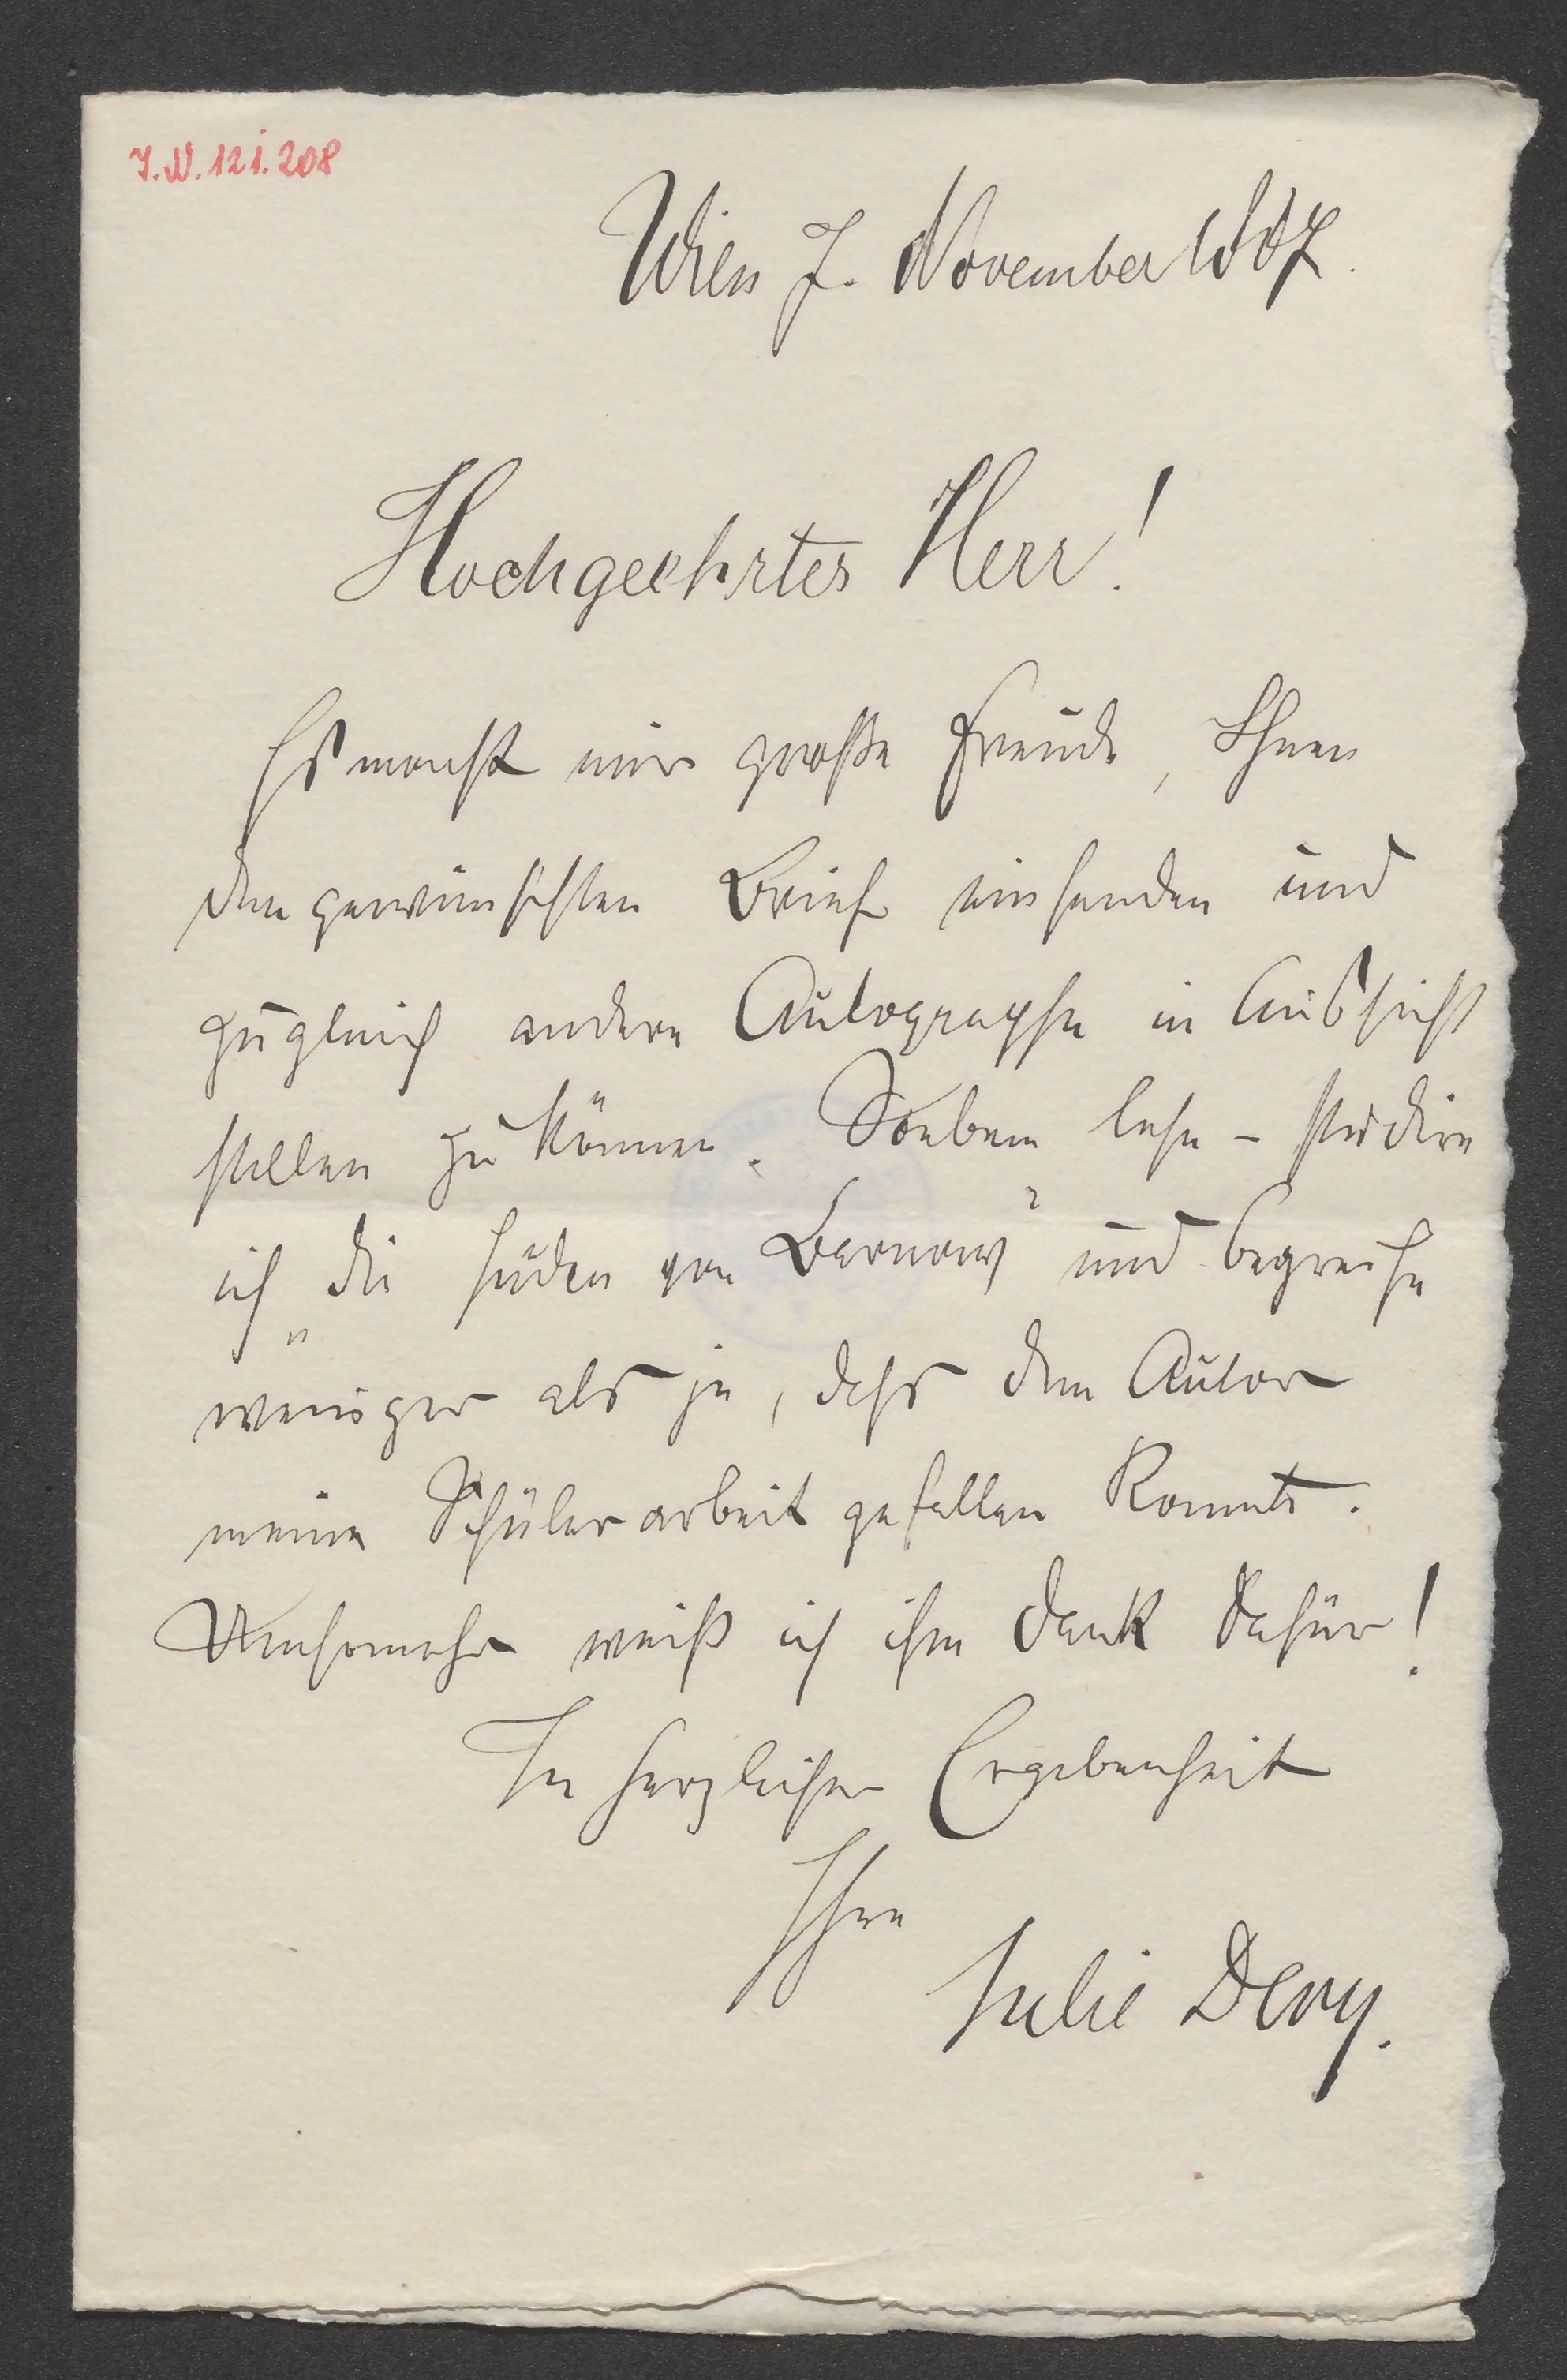 I.N. 121.208
Wien 7. November 1887.
Hochgeehrter Herr!
Es macht mir große Freude, Ihnen
den gewünschten Brief einsenden und
zugleich andere Autographe in Aussicht
stellen zu können. Soeben lese – studire
ich „die Juden von Barnow“ und begreife
weniger als je, daß dem Autor
meine Schülerarbeit gefallen konnte.
Umsomehr weiß ich ihm Dank dafür!
In herzlicher Ergebenheit
Ihre
Julie Dery.